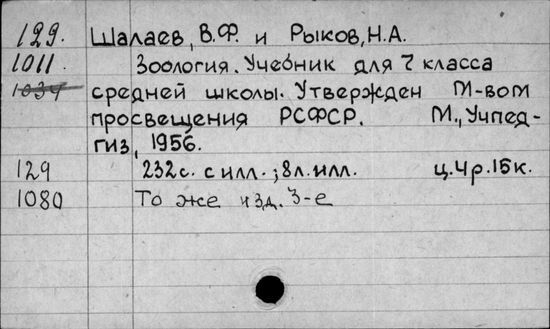 129. Шалаев, В.Ф. и Рыков, Н.А.
1011. Зоология. Учебник для 7 класса
1034 средней школы. Утвержден М-вом
просвещения РСФСР. М., Учпед-
гиз, 1956.
129 232с. с илл.; 8л. илл. ц. 4р. 15к.
1080 То же изд. 3-е